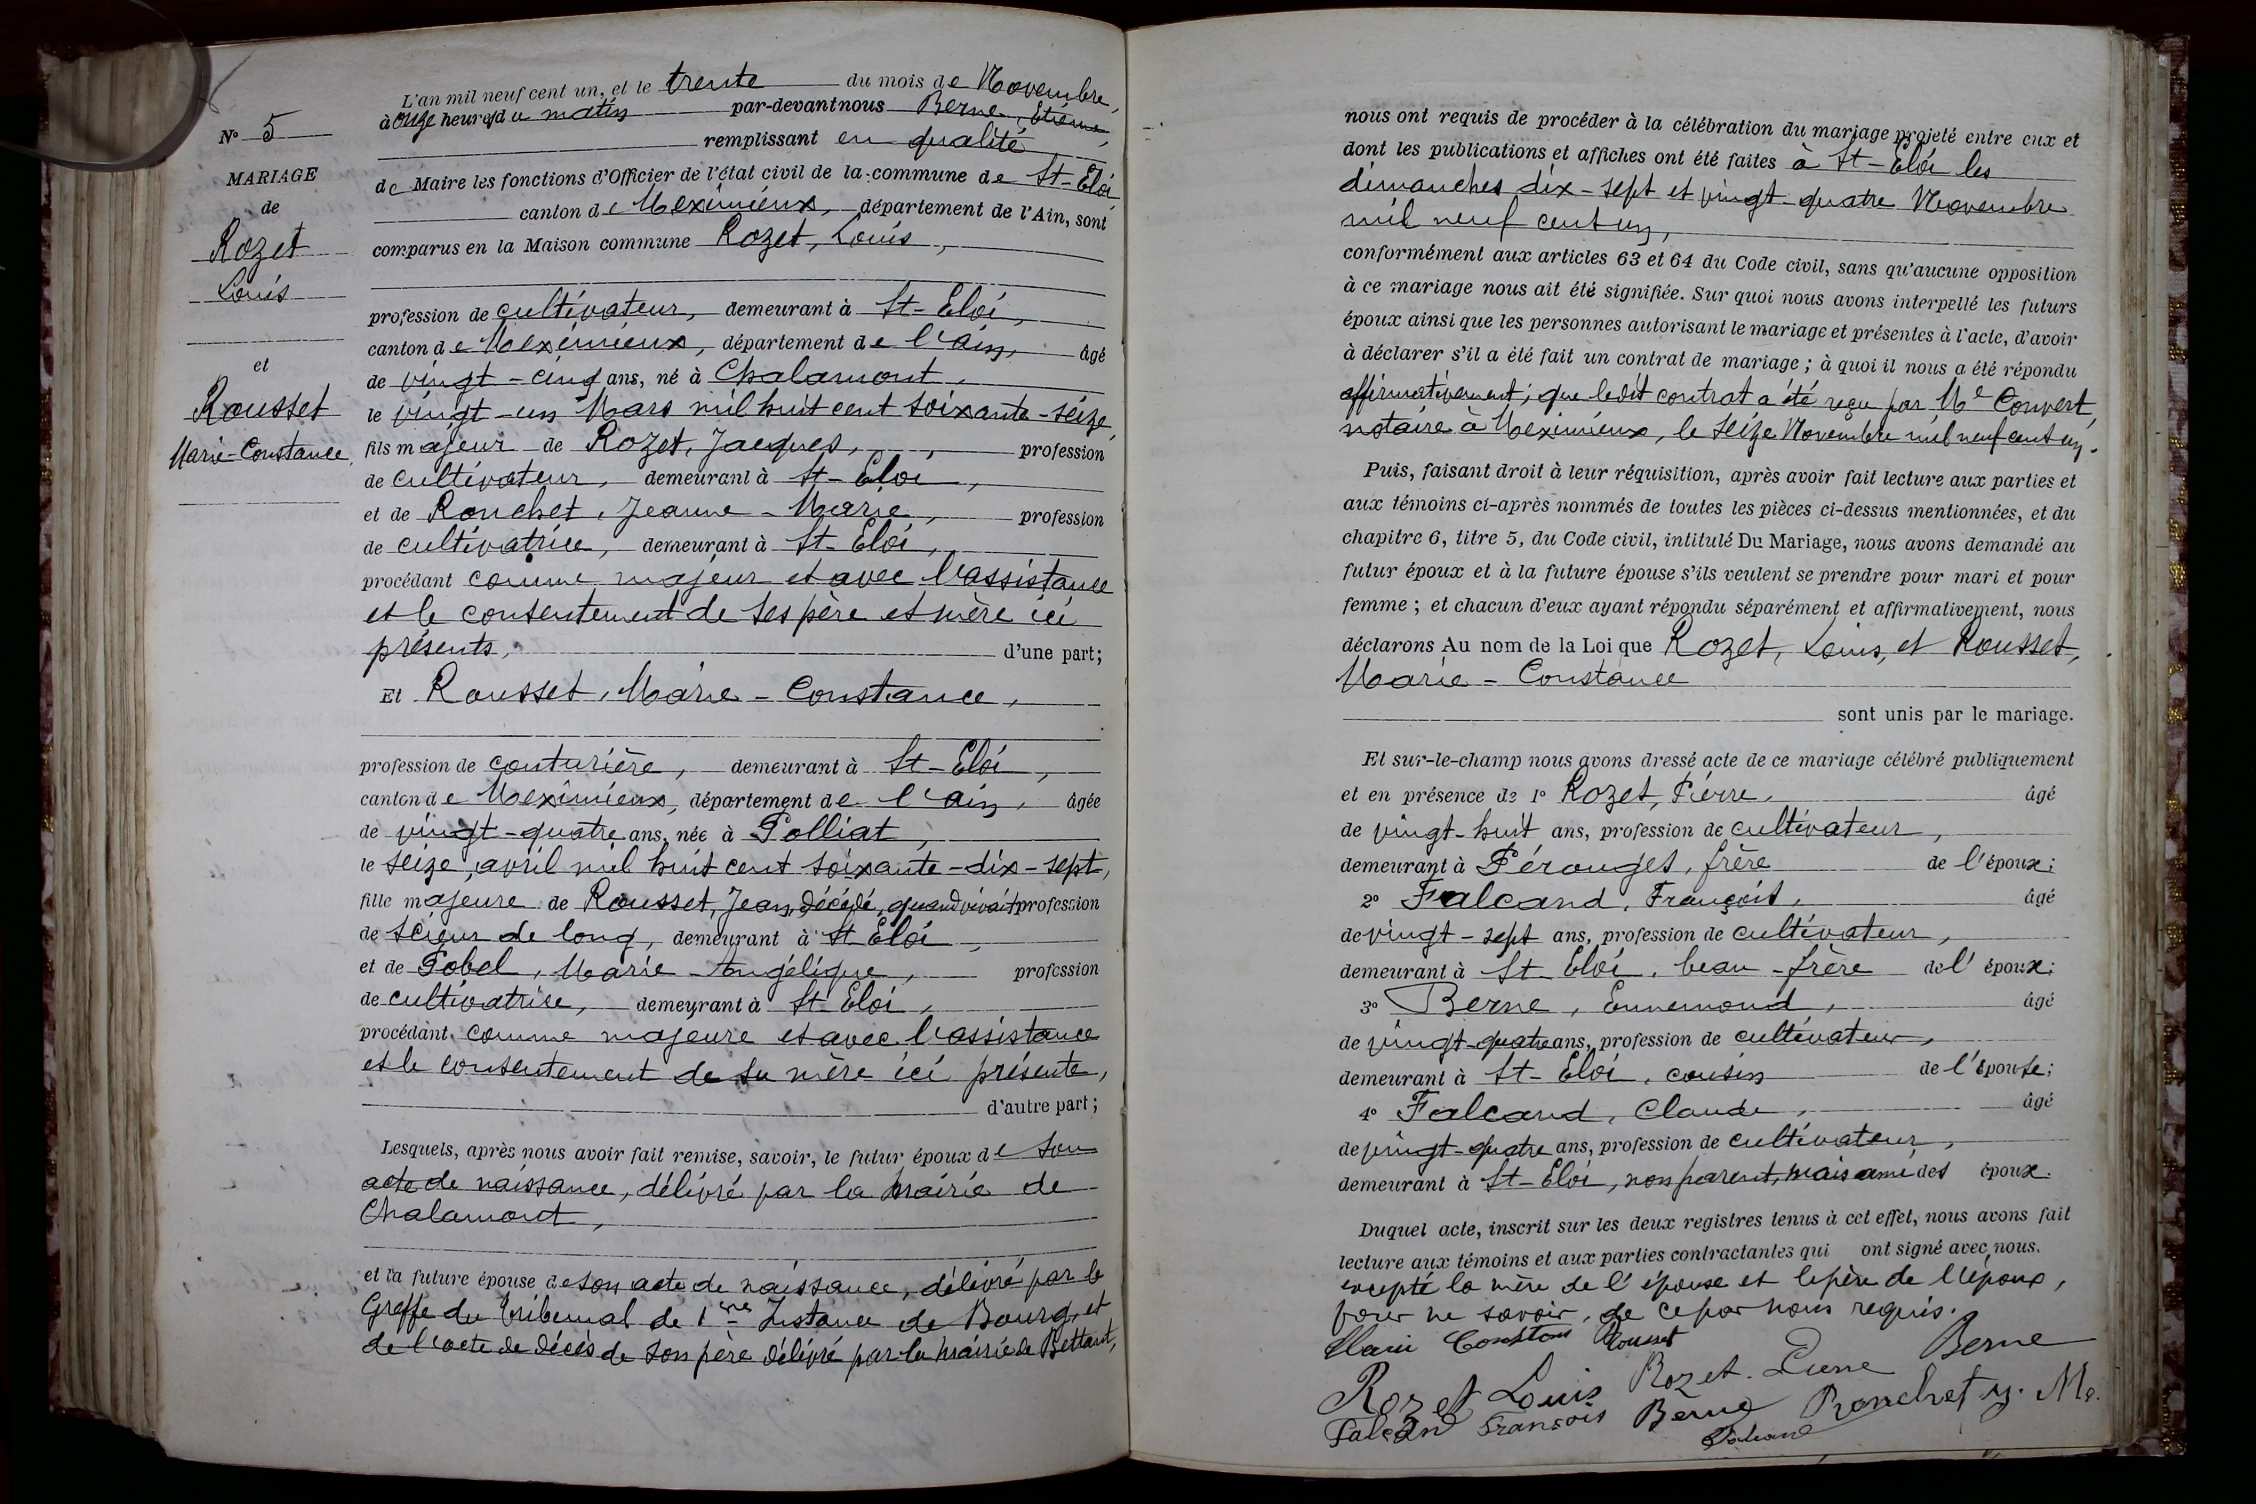 N° 5
MARIAGE
de
Rozet
Louis
et
Rousset
Marie-Constance
L'an mil neuf cent un, et le trente du mois de Novembre,
à onze heures du matin par-devant nous Berne, Etienne,
remplissant en qualité
de Maire les fonctions d'Officier de l'état civil de la commune de St-Eloi
canton de Meximieux, département de l'Ain, sont
comparus en la Maison commune Rozet, Louis,
profession de cultivateur, demeurant à St-Eloi,
canton de Meximieux, département de l'Ain, âgé
de vingt-cinq ans, né à Chalamont,
le vingt-un Mars mil huit cent soixante-seize,
fils majeur de Rozet, Jacques, profession
de cultivateur, demeurant à St-Eloi,
et de Ronchet, Jeanne-Marie, profession
de cultivatrice, demeurant à St-Eloi,
procédant comme majeur et avec l'assistance
et le consentement de ses père et mère ici
présents, d'une part;
Et Rousset, Marie-Constance,
profession de couturière, demeurant à St-Eloi,
canton de Meximieux, département de l'Ain, âgée
de vingt-quatre ans, née à Polliat,
le seize avril mil huit cent soixante-dix-sept,
fille majeure de Rousset, Jean, décédé, quand vivait profession
de scieur de long, demeurant à St Eloi,
et de Pobel, Marie-Angélique, profession
de cultivatrice, demeurant à St-Eloi,
procédant comme majeure et avec l'assistance
et le consentement de sa mère ici présente,
d'autre part;
Lesquels, après nous avoir fait remise, savoir, le futur époux de son
acte de naissance, délivré par la mairie de
Chalamont,
et la future épouse de son acte de naissance, délivré par le
Greffe du tribunal de 1ère Instance de Bourg, et
de l'acte de décès de son père délivré par la mairie de Bettant,
nous ont requis de procéder à la célébration du mariage projeté entre eux et
dont les publications et affiches ont été faites à St-Eloi les
dimanches dix-sept et vingt-quatre Novembre
mil neuf cent un,
conformément aux articles 63 et 64 du Code civil, sans qu'aucune opposition
à ce mariage nous ait été signifiée. Sur quoi nous avons interpellé les futurs
époux ainsi que les personnes autorisant le mariage et présentes à l'acte, d'avoir
à déclarer s'il a été fait un contrat de mariage ; à quoi il nous a été répondu
affirmativement; que ledit contrat a été reçu par Me Convert,
notaire à Meximieux, le seize Novembre mil neuf cent un.
Puis, faisant droit à leur réquisition, après avoir fait lecture aux parties et
aux témoins ci-après nommés de toutes les pièces ci-dessus mentionnées, et du
chapitre 6, titre 5, du Code civil, intitulé Du Mariage, nous avons demandé au
futur époux et à la future épouse s'ils veulent se prendre pour mari et pour
femme ; et chacun d'eux ayant répondu séparément et affirmativement, nous
déclarons Au nom de la Loi que Rozet, Louis, et Rousset,
Marie-Constance
sont unis par le mariage.
Et sur-le-champ nous avons dressé acte de ce mariage célébré publiquement
et en présence de 1° Rozet, Pierre, âgé
de vingt-huit ans, profession de cultivateur,
demeurant à Pérouges, frère de l'époux;
2° Falcand, François, âgé
de vingt-sept ans, profession de cultivateur,
demeurant à St Eloi, beau-frère de l'époux;
3° Berne, Ennemond, âgé
de vingt-quatre ans, profession de cultivateur,
demeurant à St-Eloi, cousin de l'épouse;
4° Falcand, Claude, âgé
de vingt-quatre ans, profession de cultivateur,
demeurant à St-Eloi, non parent, mais ami des époux.
Duquel acte, inscrit sur les deux registres tenus à cet effet, nous avons fait
lecture aux témoins et aux parties contractantes qui ont signé avec nous.
excepté la mère de l'épouse et le père de l'époux,
pour ne savoir, de ce par nous requis.
Marie Constance Rousset
Rozet Louis Rozet Pierre Berne
Falcand François Berne Ronchet J. M.
Falcand